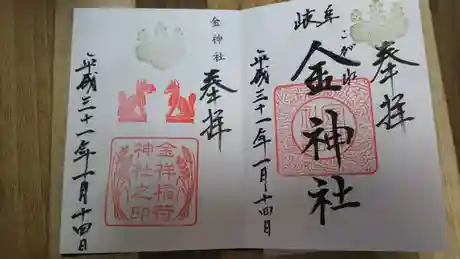 岐阜
こがね
奉拝
金神社
平成三十一年一月十四日
金神社
奉拝
金祥稲荷
神社之印
平成三十一年一月十四日